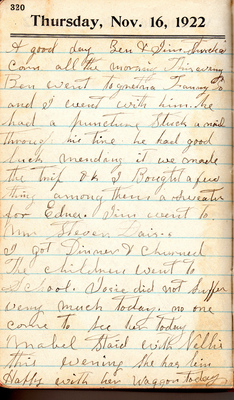 320
Thursday, Nov. 16, 1922
A good day Ben & Jim
corn all the morning This evening
Ben went to
and I went with him. he
had a puncture Stuck a nail
through his tire he had good
luck mending it we made
the trip O k I Bought a few
thing among them a sweater
for Edna. Jim went to
Mr Steven
I got Dinner & churned
The children went to
School. Josie did not suffer
very much today. no one
come to see her today
Mabel Staid with Nellie
this evening she has bin
Happy with her Waggon today